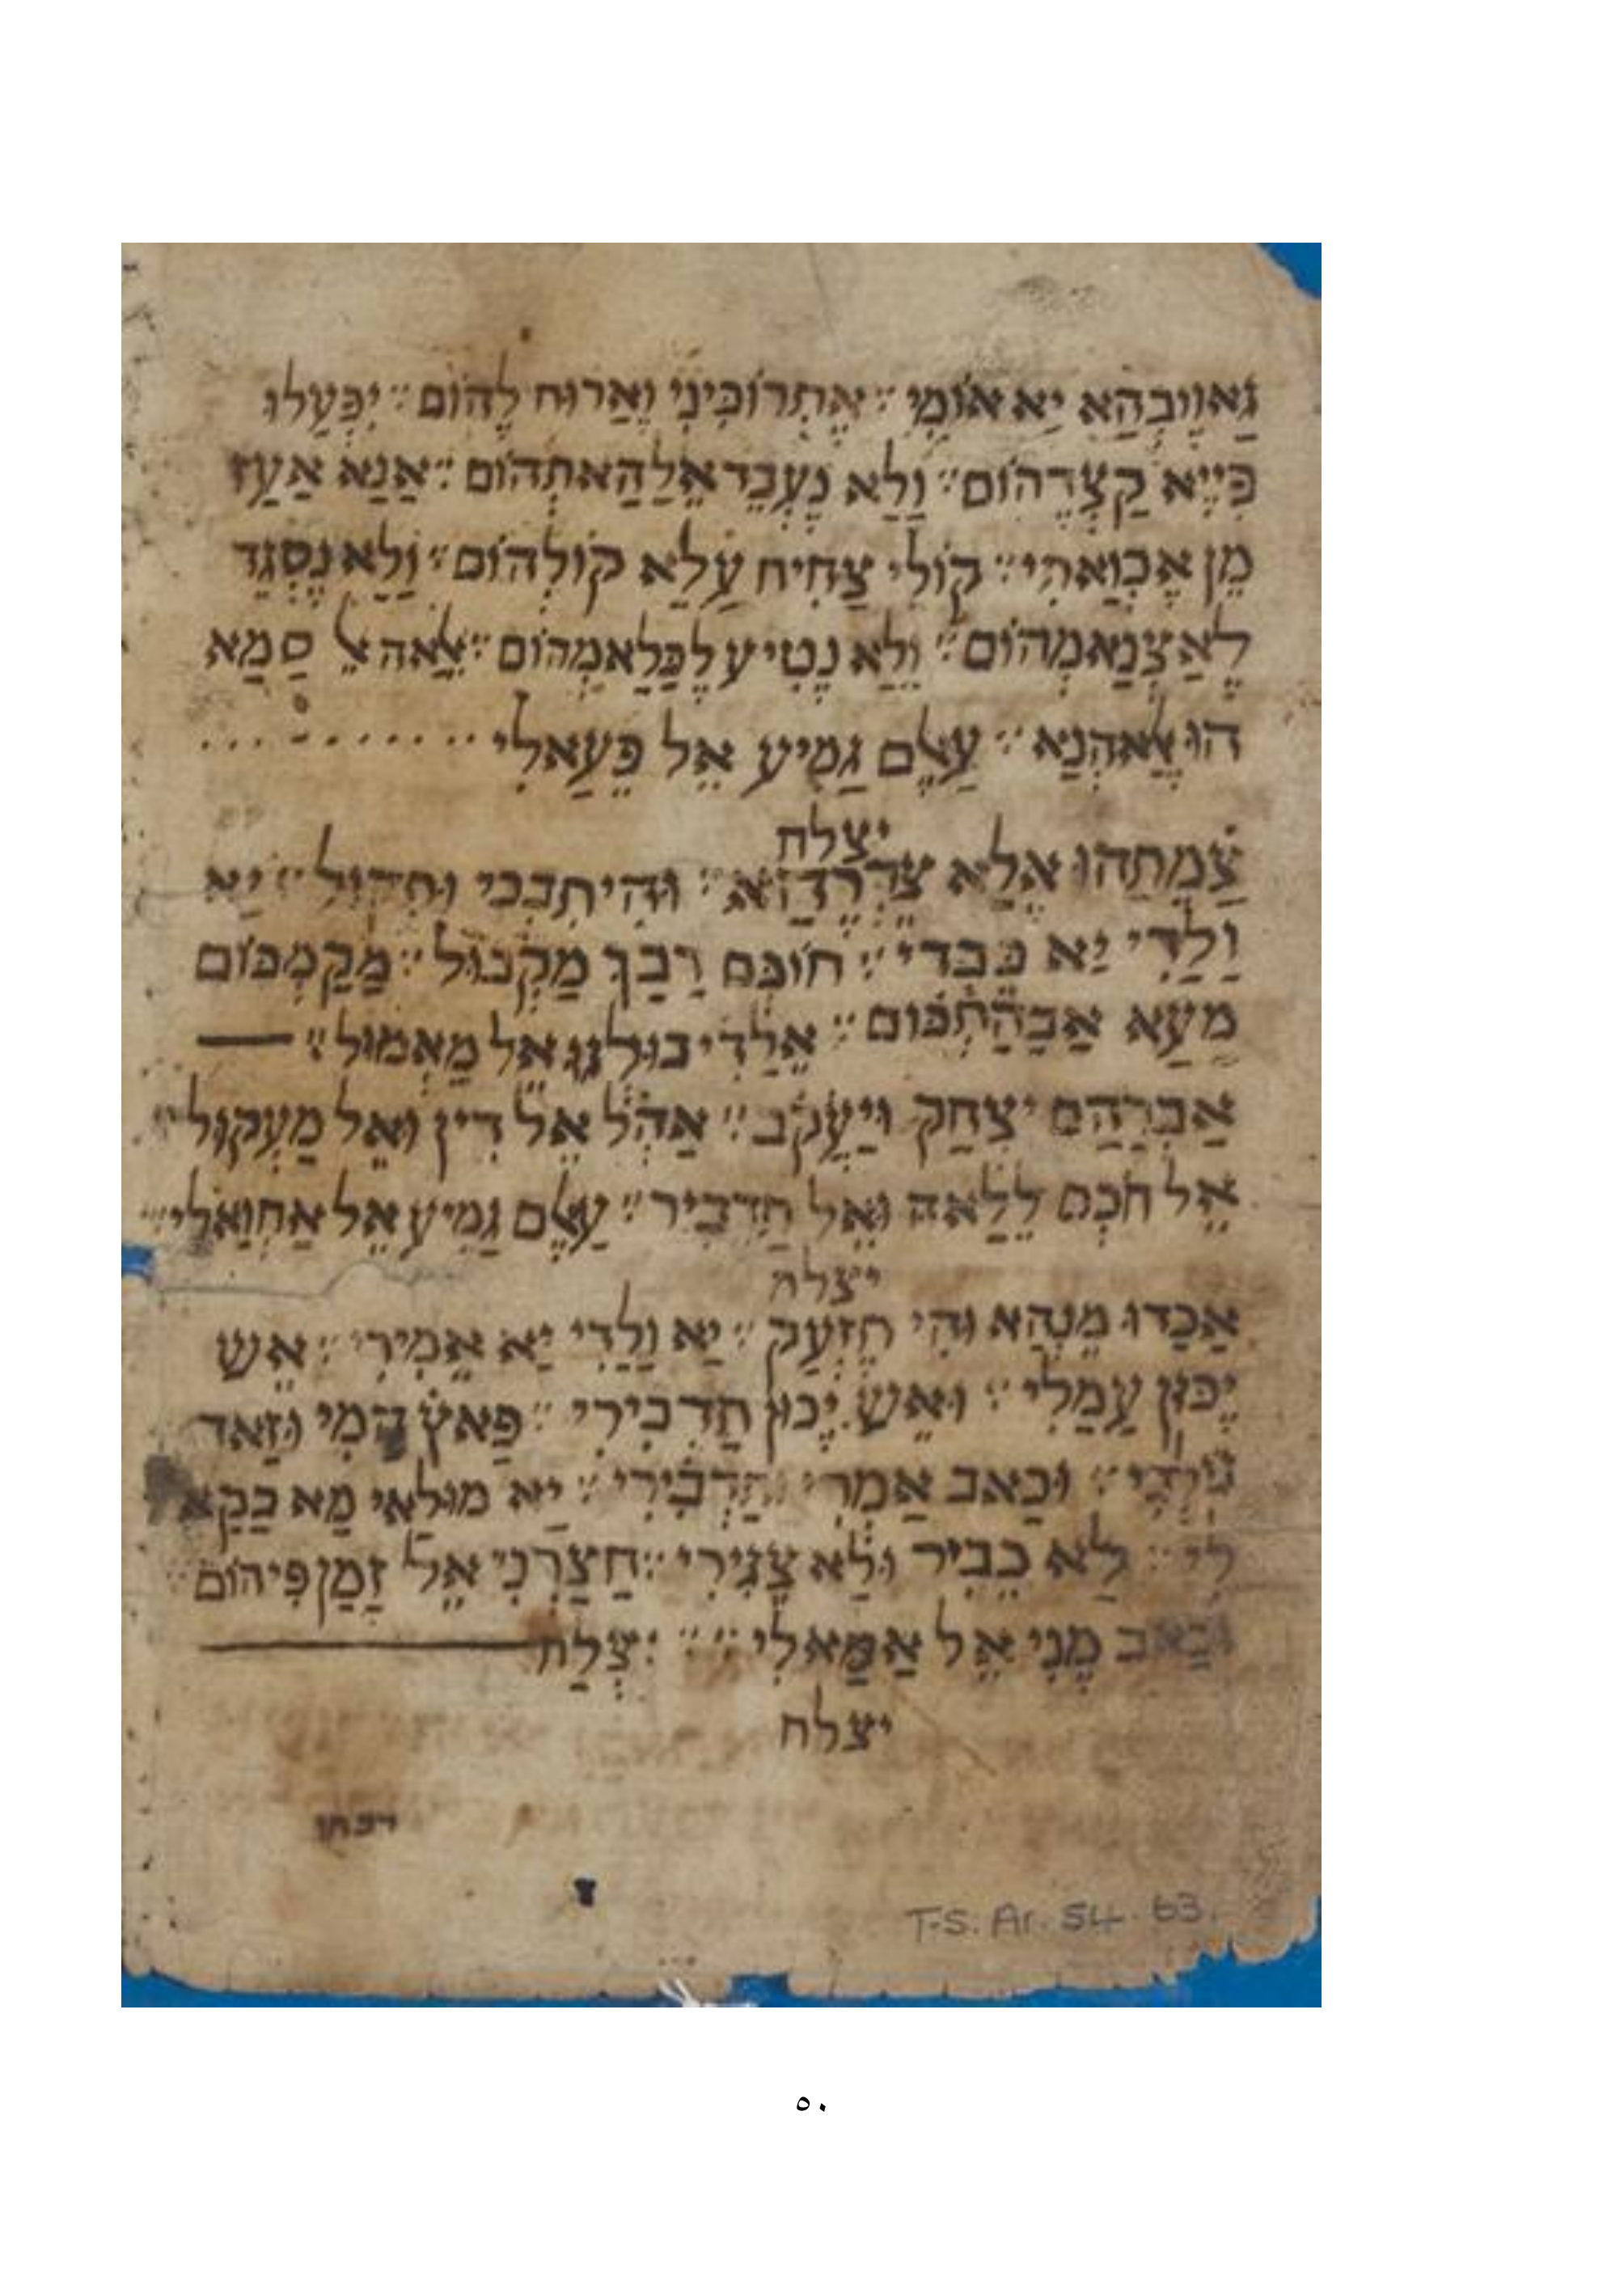 גַאוִיבְהַא יַא אוֹמִי ׃ אֶתְרוֹכִּינִי וַארוּח לֶהוֹם ׃ יִפְּעַלוּ
פִּייֶא קַצְדֶהוֹם ׃ וַלַא נֶעְבֵד אֶלַהַאתְהוֹם ׃ אַנַא אַעַז
מֶן אֶכְוַאתִי ׃ קוֹלִי צַחִיח עַלַא קוֹלְהוֹם ׃ וַלַא נֶסְגֶד
לֶאַצְנַאמְהוֹם ׃ וַלַא נֶטִיע לֶכַּלַאמְהוֹם ׃ אלאה אֶל סַמַא
הוּ אלאהְנַא ׃ עַאלֶם גַמִיע אֶל פֶּעַאלִי
יצלח
צַמֶתְהוּ אֶלַא צֶדְרֶהַא ׃ וּהִי תִבְכִי וּתְקוּל ׃ יַא
וַלַדִי יַא כֶּבְדִי ׃ חוֹכְּם רַבַּךּ מַקְבּוּל ׃ מַקַמְכּוֹם
מַעַא אַבַּהַתְכּוּם ׃ אֶלַדִי בוּלגוּ אֶל מַאמוּל ׃
אַבְרַהַם יִצְחַק וּיַעְקֹב ׃ אַהְל אֶל דִין וּאֶל מַעְקוּל ׃
אֶל חֹכְם לֶלַאה וּאֶל תַדְבִּיר ׃ עַאלֶם גַמִיע אֶל אַחְוַאלִי ׃
יצלח
אַכַדוּ מֶנְהַא וּהִי תֶזְעַק ׃ יַא וַלַדִי יַא אֶמִירִי ׃ אֶש
יֶכּוּן עַמַלִי ׃ וּאֶש יֶכּוּן תַדְבִּירִי ׃ פַאץ הַמִי וּזַאד
וּכַאב אַמְרִי וּתַדְבִּירִי ׃ יַא מוּלַאי מַא בַקַא
לִי ׃ לַא כֶבִיר וּלַא צֶגִירִי ׃ חַצַרְנִי אֶל זַמַן פִיהוֹם ׃
וּכַאב מֶנִי אֶל אַמַאלִי ׃ ׃ יִצְלַח
יצלח
T-S. Ar. 54. 63.
٥٠